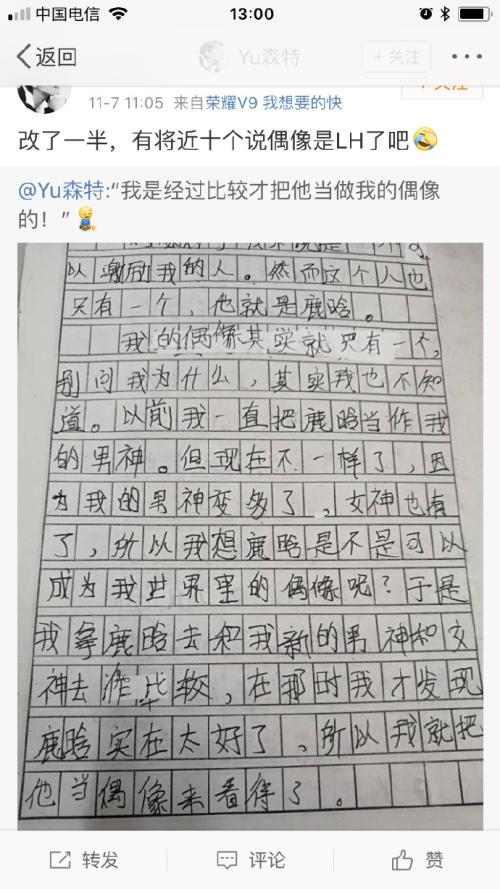 中国电信 13:00
返回 Yu森特 +关注
11-7 11:05 来自荣耀V9 我想要的快
改了一半，有将近十个说偶像是LH了吧
@Yu森特:“我是经过比较才把他当做我的偶像
的！”
以激励我的人。然而这个人也
只有一个，他就是鹿晗。
我的偶像其实就只有一个，
别问我为什么，其实我也不知
道。以前我一直把鹿晗当作我
的男神。但现在不一样了，因
为我的男神变多了，女神也有
了，所以我想鹿晗是不是可以
成为我世界里的偶像呢？于是
我拿鹿晗去和我新的男神和女
神去作比较，在那时我才发现
鹿晗实在太好了、所以我就把
他当偶像来看待了。
转发 评论 赞